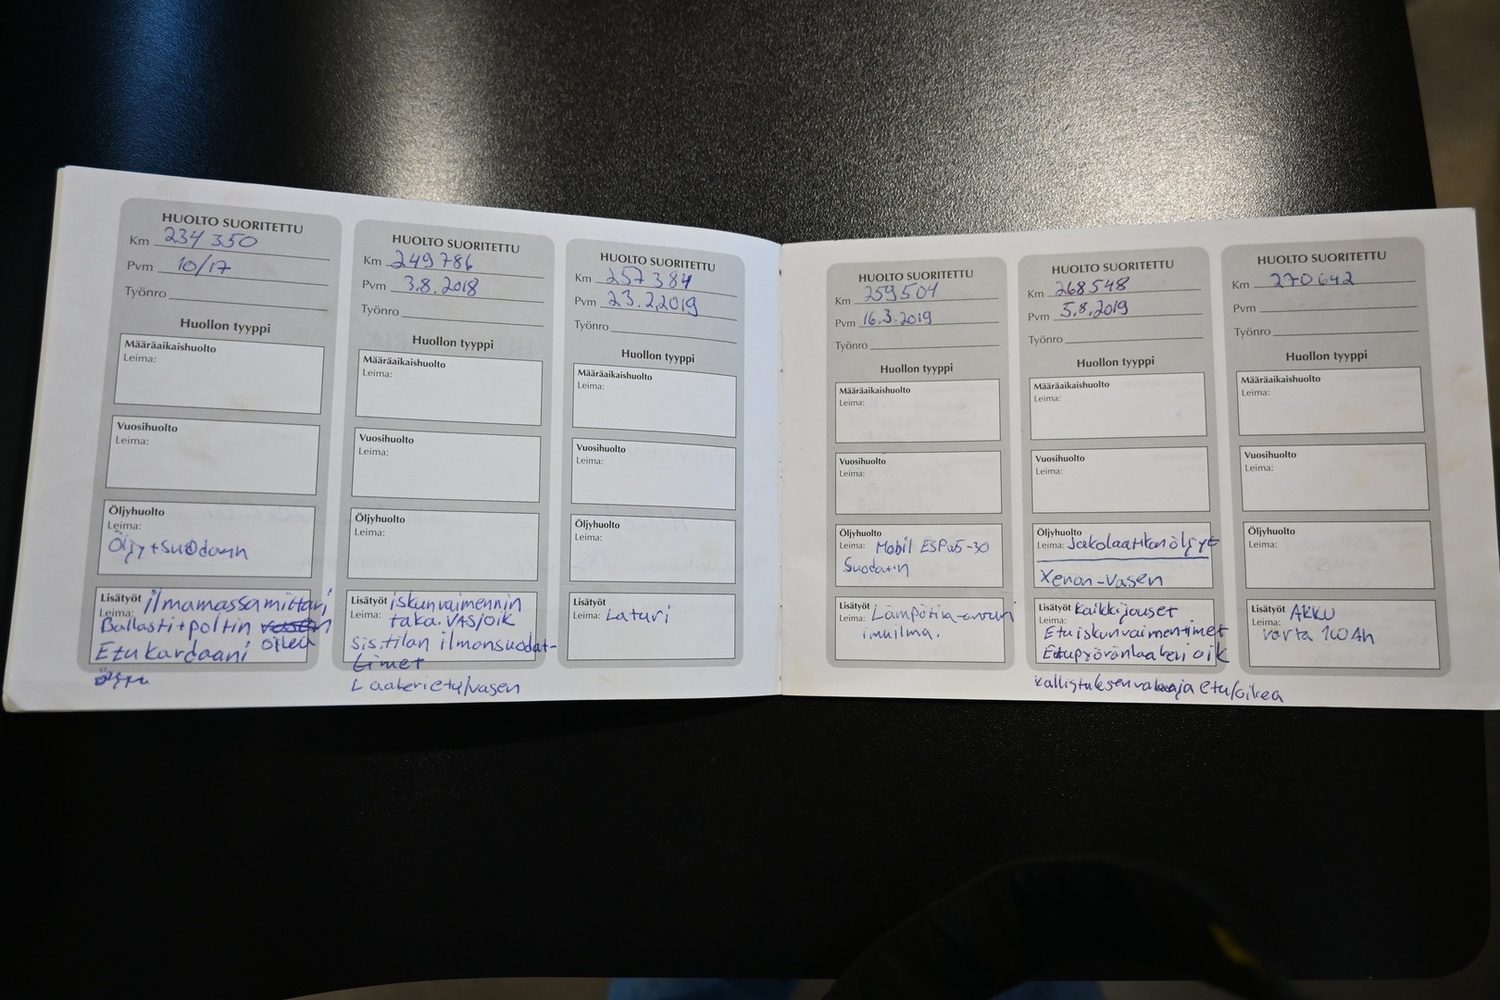 HUOLTO SUORITETTU
Km 234 350
Pvm 10/17
Työnro
Huollon tyyppi
Määräaikaishuolto
Leima:
Vuosihuolto
Leima:
Öljyhuolto
Leima:
Öljy+suodatin
Lisätyöt ilmamassamittari
Leima:
Ballasti+poltin vasen oikea
Etukardaani
HUOLTO SUORITETTU
Km 249 786
Pvm 3.8.2018
Työnro
Huollon tyyppi
Määräaikaishuolto
Leima:
Vuosihuolto
Leima:
Öljyhuolto
Leima:
Lisätyöt iskunvaimennin
Leima: taka. VAS/OIK
sis.tilan ilmansuodat-
timet
Laakeri etu/vasen
HUOLTO SUORITETTU
Km 257 384
Pvm 23.2.2019
Työnro
Huollon tyyppi
Määräaikaishuolto
Leima:
Vuosihuolto
Leima:
Öljyhuolto
Leima:
Lisätyöt
Leima: Laturi
HUOLTO SUORITETTU
Km 259504
Pvm 16.3.2019
Työnro
Huollon tyyppi
Määräaikaishuolto
Leima:
Vuosihuolto
Leima:
Öljyhuolto
Leima: Mobil ESP 5-30
Suodatin
Lisätyöt Lämpötila-anturi
Leima: imuilma.
HUOLTO SUORITETTU
Km 268548
Pvm 5.8.2019
Työnro
Huollon tyyppi
Määräaikaishuolto
Leima:
Vuosihuolto
Leima:
Öljyhuolto
Leima: Jakolaatikon öljyt
Xenon-Vasen
Lisätyöt kaikki jouset
Leima: Etuiskunvaimentimet
Etupyöränlaakeri oik
kallistuksenvakaaja etu/oikea
HUOLTO SUORITETTU
Km 270642
Pvm
Työnro
Huollon tyyppi
Määräaikaishuolto
Leima:
Vuosihuolto
Leima:
Öljyhuolto
Leima:
Lisätyöt AKKU
Leima: varta 100Ah